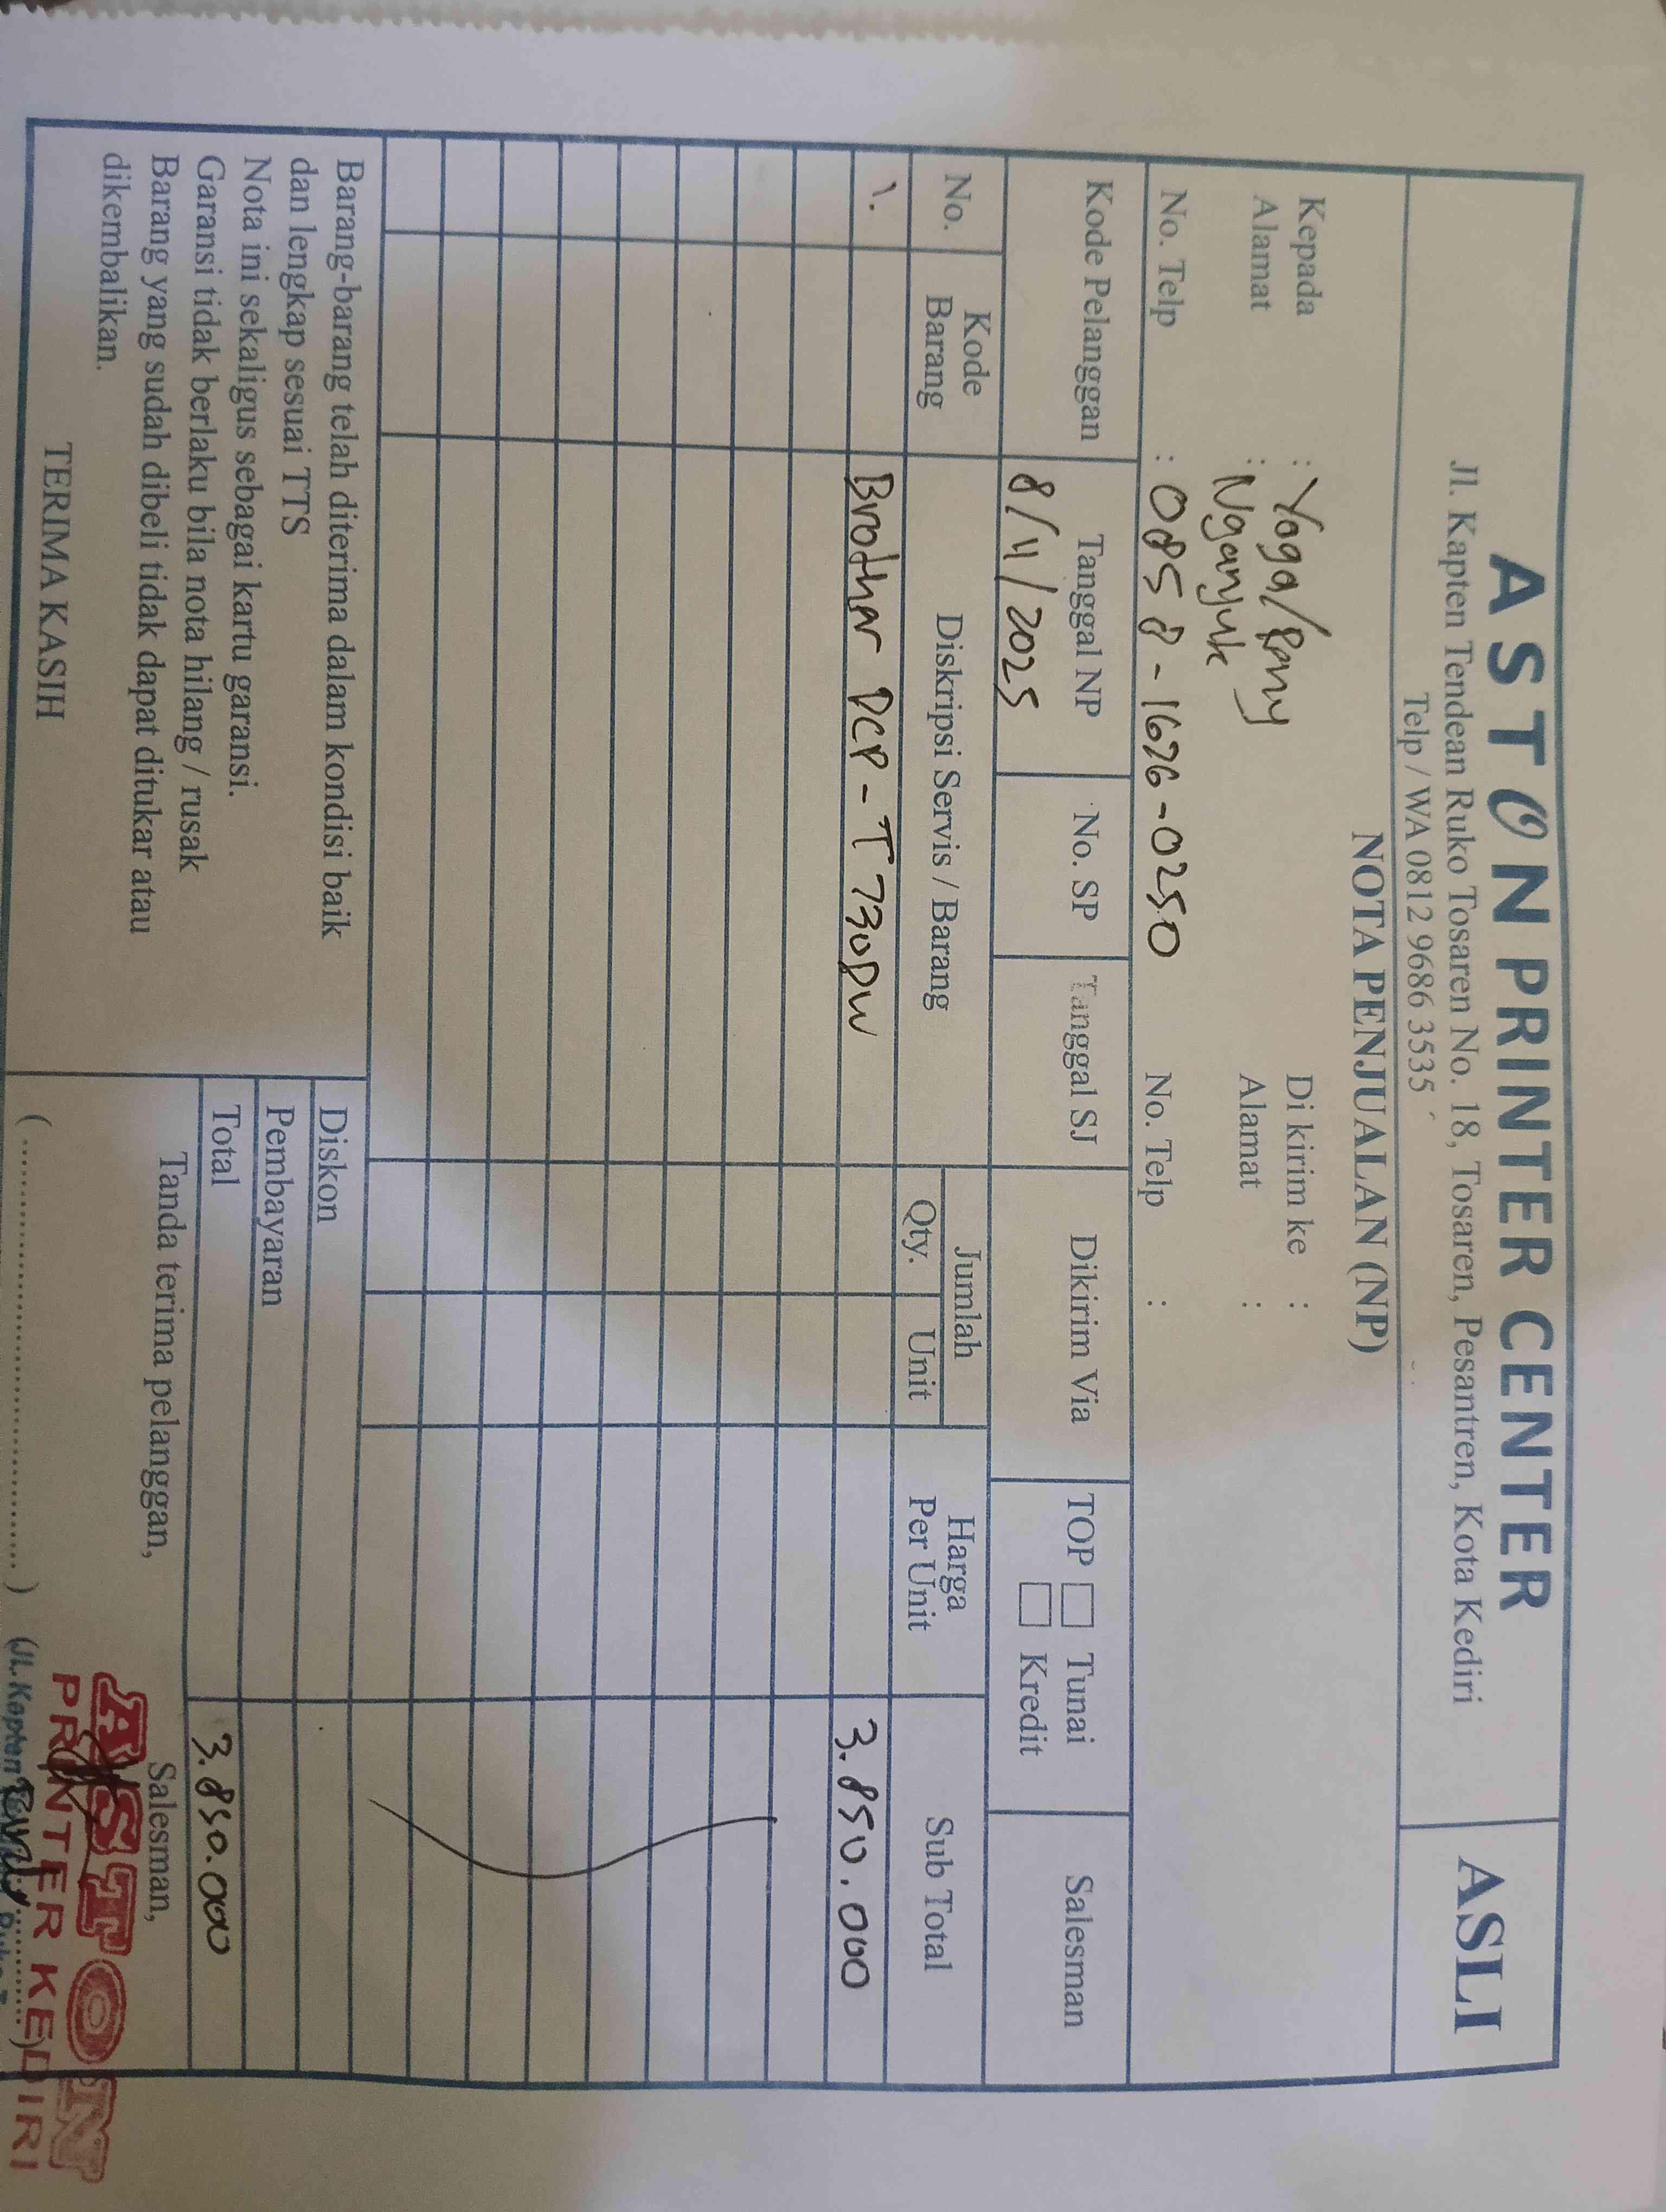 ASTON PRINTER CENTER
Jl. Kapten Tendean Ruko Tosaren No. 18, Tosaren, Pesantren, Kota Kediri
Telp / WA 0812 9686 3535
ASLI
NOTA PENJUALAN (NP)
Kepada : Yoga/
Alamat : Nganjuk
No. Telp : 0858-1626-0250
Di kirim ke :
Alamat :
No. Telp :
Kode Pelanggan Tanggal NP No. SP Tanggal SJ Dikirim Via TOP Tunai Kredit Salesman
8/11/2025
No. Kode Barang Diskripsi Servis / Barang Jumlah Qty. Unit Harga Per Unit Sub Total
1. Brother DCP-T730DW 3.850.000
Barang-barang telah diterima dalam kondisi baik
dan lengkap sesuai TTS
Nota ini sekaligus sebagai kartu garansi.
Garansi tidak berlaku bila nota hilang / rusak
Barang yang sudah dibeli tidak dapat ditukar atau
dikembalikan.
TERIMA KASIH
Diskon
Pembayaran
Total 3.850.000
Tanda terima pelanggan,
Salesman,
ASTON
PRINTER KEDIRI